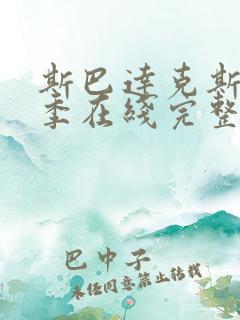 斯巴达克斯
季在线完整
巴中子
未经同意禁止转载